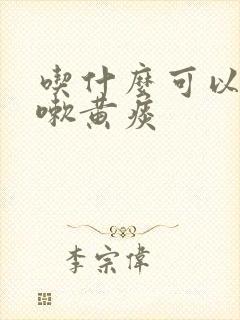 喫什麼可以
嗽黃痰
李宗偉